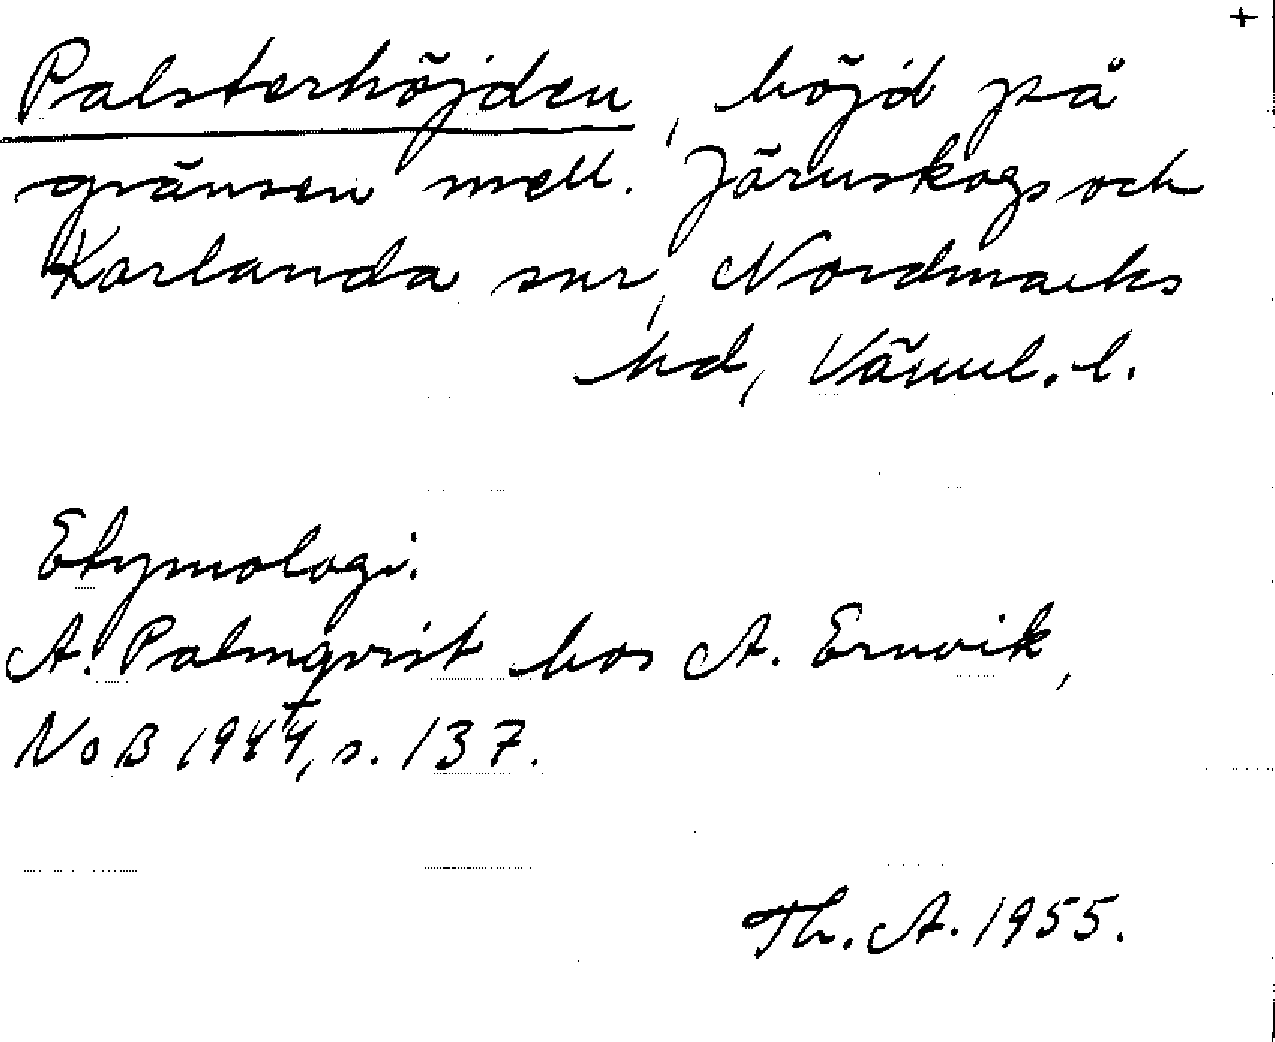 +
Palsterhöjden, höjd på
gränsen mell. Järnskogs och
Karlanda snr, Nordmarks
hd, Värml. l.
Etymologi.
A. Palmqvist hos A. Ernvik,
NoB 1944, s. 137.
Th. A. 1955.